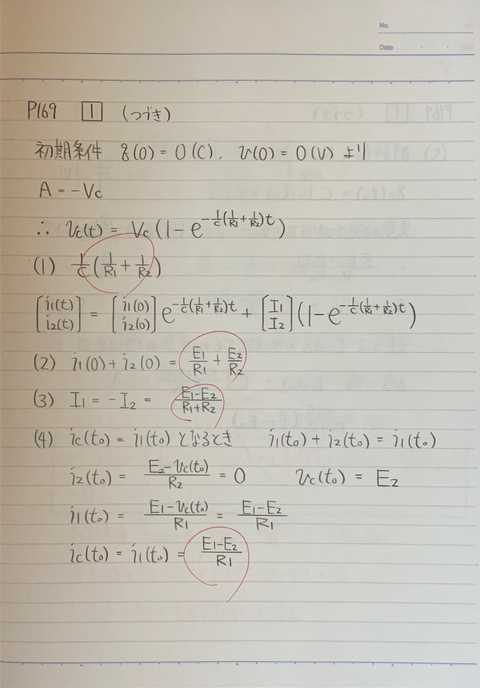 No.
Date
P169 1 (つづき)
初期条件 q(0) = 0 (C), v(0) = 0 (V) より
A = -Vc
∴ Vc(t) = Vc(1-e^{-\frac{1}{C}(\frac{1}{R1}+\frac{1}{R2})t})
(1) \frac{1}{C}(\frac{1}{R1}+\frac{1}{R2})
[i1(t) i2(t)] = [i1(0) i2(0)] e^{-\frac{1}{C}(\frac{1}{R1}+\frac{1}{R2})t} + [I1 I2] (1-e^{-\frac{1}{C}(\frac{1}{R1}+\frac{1}{R2})t})
(2) i1(0) + i2(0) = \frac{E1}{R1} + \frac{E2}{R2}
(3) I1 = -I2 = \frac{E1-E2}{R1+R2}
(4) ic(t0) = i1(t0) となるとき i1(t0) + i2(t0) = i1(t0)
i2(t0) = \frac{E2-Vc(t0)}{R2} = 0 Vc(t0) = E2
i1(t0) = \frac{E1-Vc(t0)}{R1} = \frac{E1-E2}{R1}
ic(t0) = i1(t0) = \frac{E1-E2}{R1}